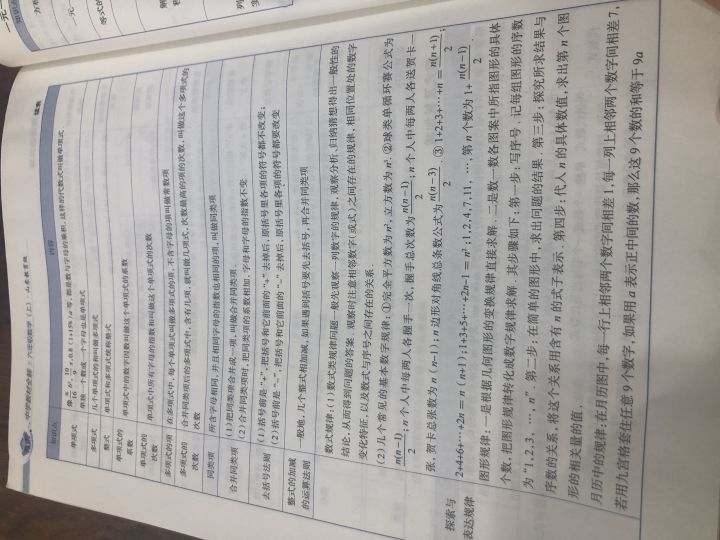 中学教材全解 六年级数学（上） 山东教育版
续表
知识点 内容
单项式
等，都是数与字母的乘积，这样的代数式叫做单项式
单独一个数或一个字母也是单项式
多项式 几个单项式的和叫做多项式
整式 单项式和多项式统称整式
单项式的系数 单项式中的数字因数叫做这个单项式的系数
单项式的次数 单项式中所有字母的指数和叫做这个单项式的次数
多项式的项 在多项式中，每个单项式叫做多项式的项，不含字母的项叫做常数项
多项式的次数 合并同类项后的多项式中，含有几项，就叫做几项式，次数最高的项的次数，叫做这个多项式的次数
同类项 所含字母相同，并且相同字母的指数也相同的项，叫做同类项
合并同类项 (1)把同类项合并成一项，叫做合并同类项.
(2)合并同类项时，把同类项的系数相加，字母和字母的指数不变
去括号法则 (1)括号前是“+”，把括号和它前面的“+”去掉后，原括号里各项的符号都不改变；
(2)括号前是“-”，把括号和它前面的“-”去掉后，原括号里各项的符号都要改变
整式的加减的运算法则 一般地，几个整式相加减，如果遇到括号要先去括号，再合并同类项
探索与表达规律
数式规律：(1)数式类规律问题一般先观察一列数字的规律，观察分析、归纳猜想得出一般性的
结论，从而得到问题的答案.观察时注意相邻数字(或式)之间存在的规律、相同位置处的数字
变化特征，以及数式与序号之间存在的关系.
(2)几个常见的基本数字规律：①完全平方数为n²，立方数为n³.②球类单循环赛公式为
n(n-1)/2；n个人中每两人各握手一次，握手总次数为n(n-1)/2；n个人中每两人各送贺卡一
张，贺卡总张数为n(n-1)；n边形对角线总条数公式为n(n-3)/2.③1+2+3+…+n=n(n+1)/2；
2+4+6+…+2n=n(n+1)；1+3+5+…+2n-1=n²；1,2,4,7,11,…，第n个数为1+n(n-1)/2.
图形规律：一是根据几何图形的变换规律直接求解.二是数一数各图案中所指图形的具体
个数，把图形规律转化成数字规律求解.其步骤如下：第一步：写序号.记每组图形的序数
为“1,2,3，…，n”.第二步：在简单的图形中，求出问题的结果.第三步：探究所求结果与
序数的关系，将这个关系用含有n的式子表示.第四步：代入n的具体数值，求出第n个图
形的相关量的值.
月历中的规律：在月历图中，每一行上相邻两个数字间相差1，每一列上相邻两个数字间相差7，
若用九宫格套住任意9个数字，如果用a表示正中间的数，那么这9个数的和等于9a